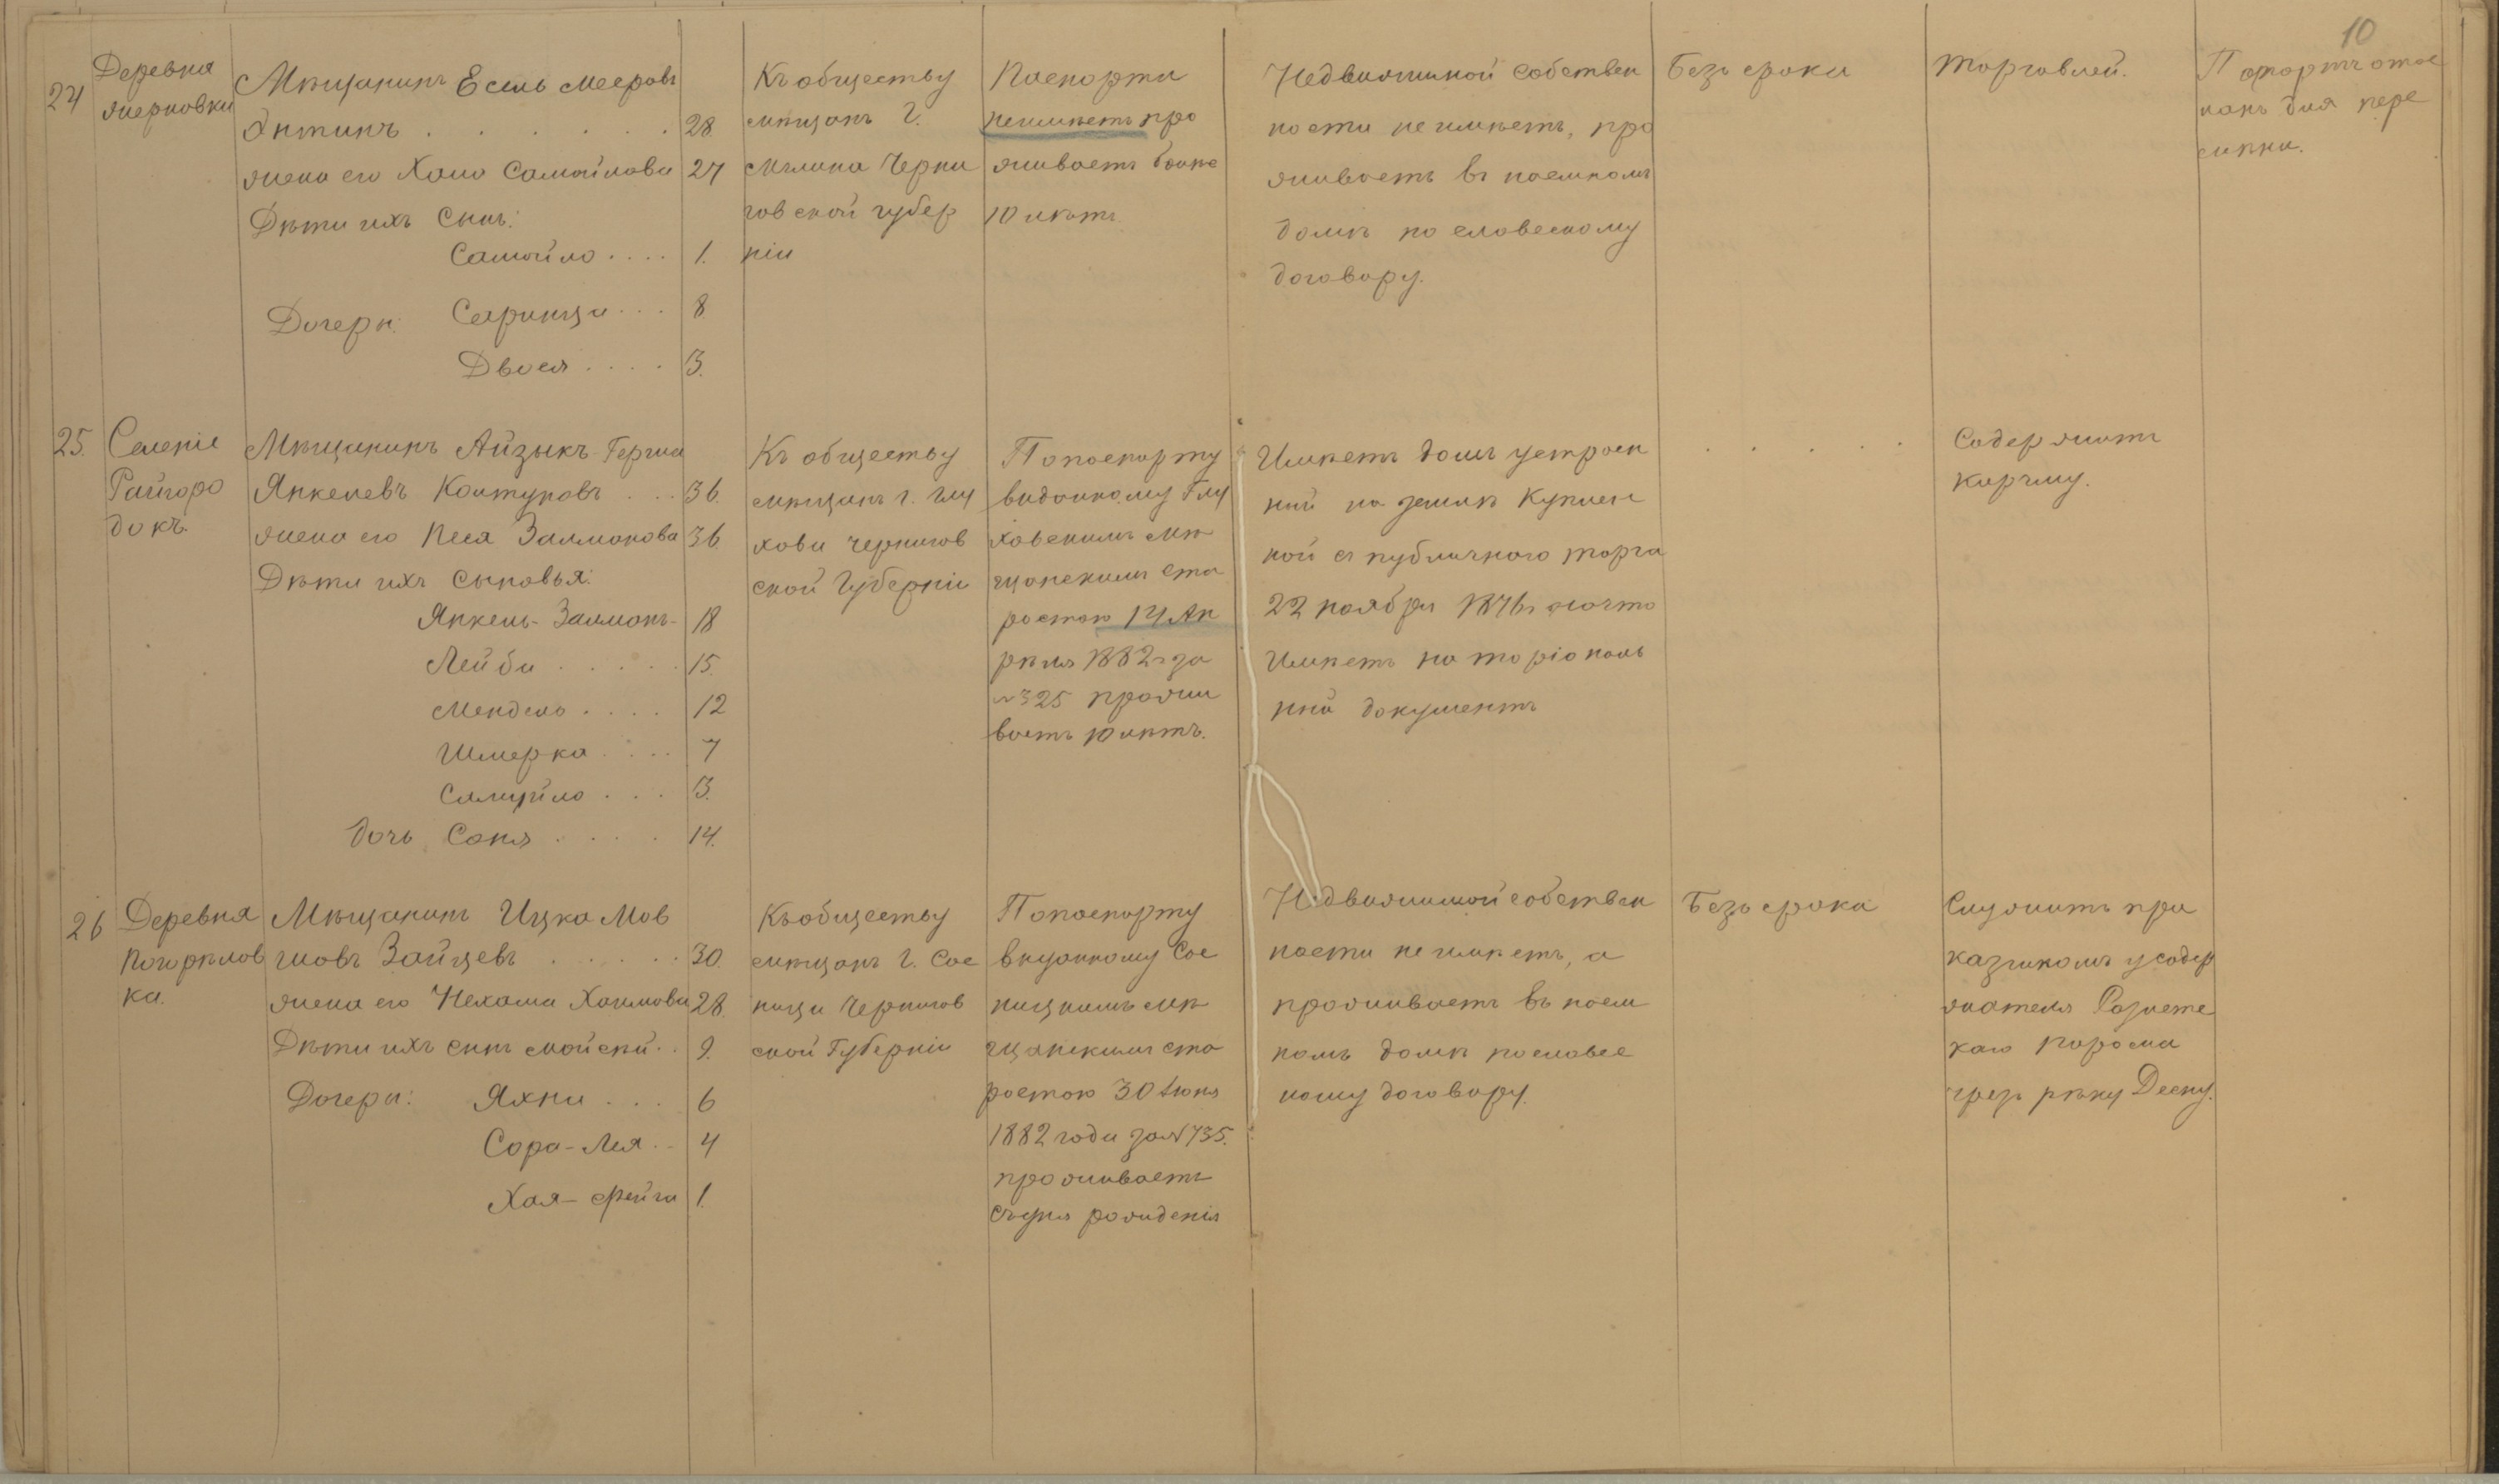 10
24
Деревня
Жерновки
Мѣщанинъ Есель Мееровъ
Энтинъ . . . . . . 28
жена его Хана Самойлова 27
Дѣти ихъ Сынъ:
Самойло . . . . 1.
Дочери:
Сяринца . . . 8
Двося . . . . 3.
Къ обществу
мѣщанъ г.
Мглина Черни
говской губер
ніи
Паспорта
неимѣетъ про
живаетъ болѣе
10 лѣтъ
Недвижимой собствен
ности не имѣетъ, про
живаетъ въ наемномъ
домѣ по словесному
договору.
Безъ срока
Торговлей.
Паспортъ отос
нанъ для пере
мѣны.
25. Селеніе
Райгоро
докъ.
Мѣщанинъ Айзыкъ-Герша
Янкелевъ Кантуровъ . . . 36.
жена его Песя Залманова 36.
Дѣти ихъ сыновья:
Янкель-Залманъ- 18
Лейба . . . . . 15.
Мендель . . . . 12
Шмерка . . . . 7
Самуйло . . . 3.
дочь Соня . . . . . 14.
Къ обществу
мѣщанъ г. Глу
хова Чернигов
ской Губерніи
По паспорту
виданному Глу
ховскимъ мѣ
щанскимъ ста
ростою 14 Ап
рѣля 1882 г за
№ 325 прожи
ваетъ 10 лѣтъ.
Имѣетъ домъ устроен
ній на землѣ Куплен
ной съ публичного торга
22 ноября 1876 г на что
Имѣетъ на торіональ
ній документъ
. . . . .
Содержитъ
Карчму.
26 Деревня
Погорѣлов
ка.
Мѣщанинъ Ицка Мов
шовъ Зайцевъ . . . . . 30.
жена его Нехама Хаимова 28.
Дѣти ихъ синъ Мойсѣй . . 9.
Дочери: Яхна . . . 6
Сора-Лея . . 4
Хая-Фейга 1.
Къ обществу
мѣщанъ г. Сос
ницы Чернигов
ской Губерніи
По паспорту
виданному Сос
ницкимъ мѣ
щанскимъ ста
ростою 30 Іюня
1882 года за № 735.
проживаетъ
съ дня рожденія
Недвижимой собствен
ности не имѣетъ, а
проживаетъ въ наем
номъ домѣ по словес
ному договору.
Безъ срока
Служитъ при
казчикомъ у содер
жателя Разлетс
каго парома
чрезъ рѣку Десну.